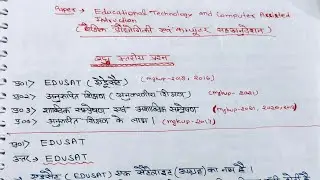 Paper - Educational Technology and Computer Assisted
Instruction
(शैक्षिक प्रौद्योगिकी एवं कम्प्यूटर सहअनुदेशन)
लघु उत्तरीय प्रश्न
प्र01> EDUSAT (एडुसैट) (mgkvp-2021, 2016)
प्र02> अनुरूपित शिक्षण ( शिक्षण) (mgkvp-2021)
प्र03> शाब्दिक सम्प्रेषण एवं अशाब्दिक सम्प्रेषण (mgkvp-2021, 2020,
प्र04> अनुरूपित शिक्षण के लाभ। (mgkvp-2017)
प्र01> EDUSAT
उत्तर- EDUSAT
(EDUSAT) एक सैटेलाइट (उपग्रह) का नाम है।